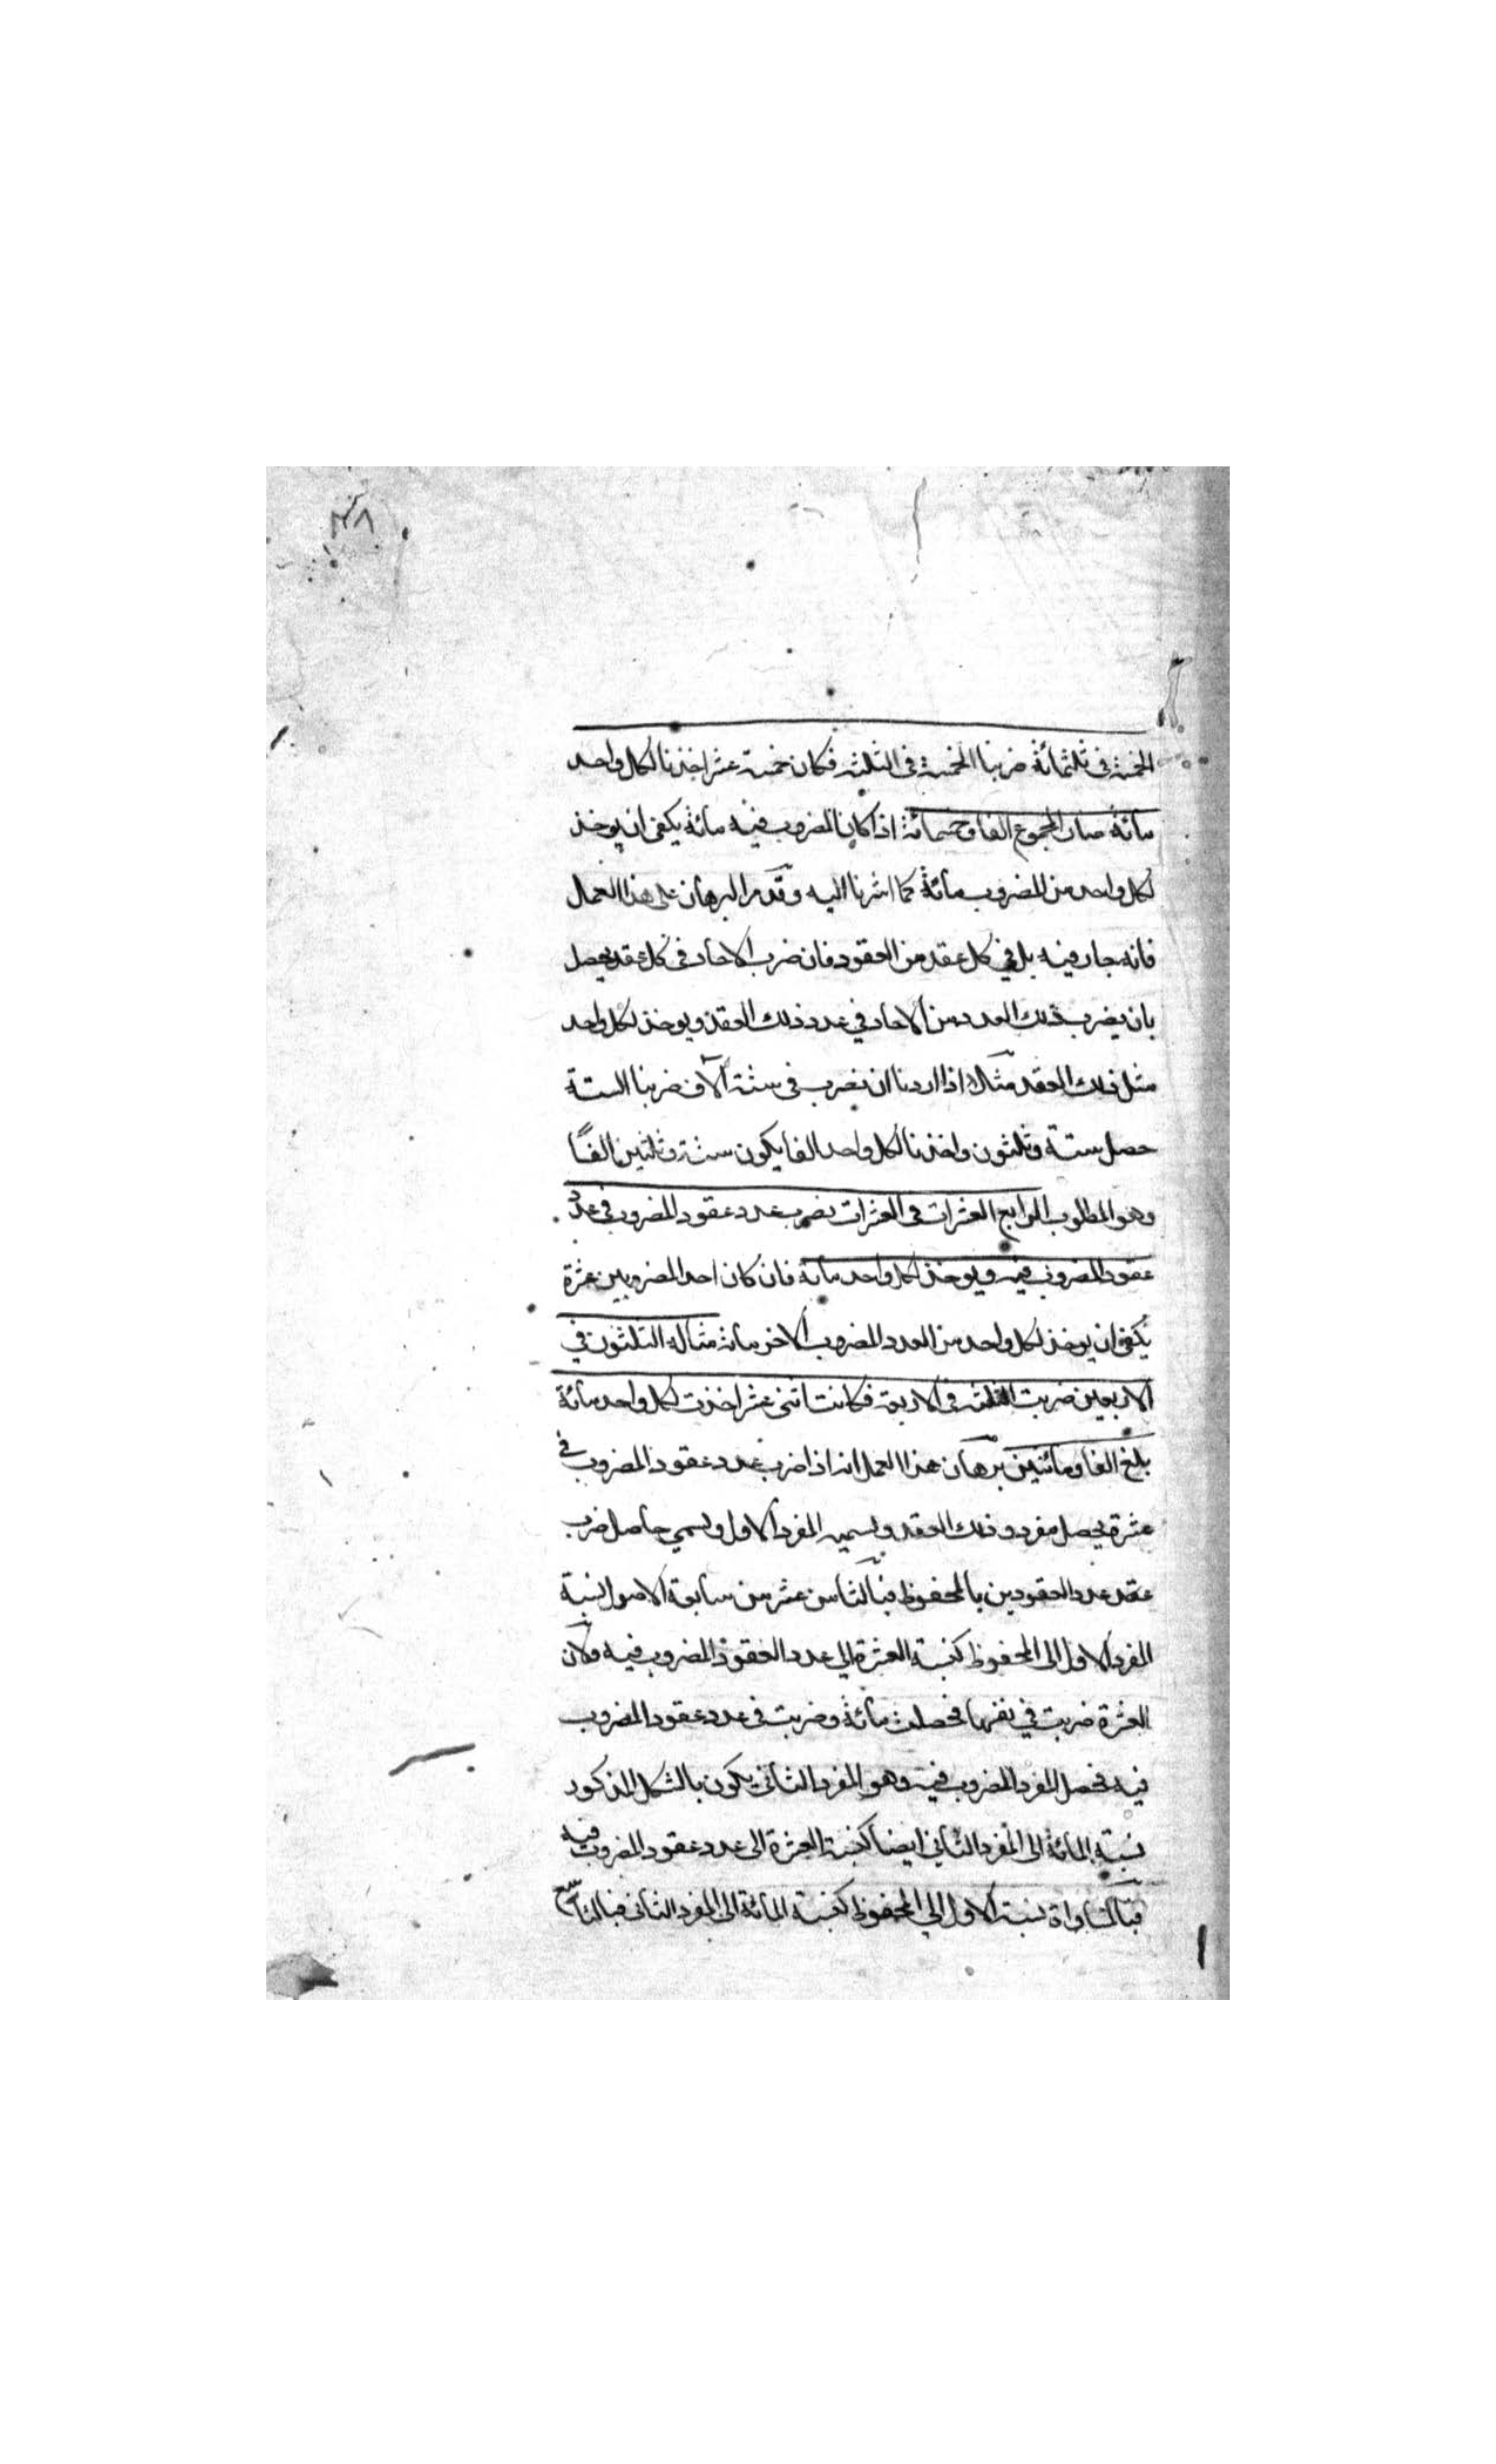 ٣٨
الخمسة فى ثلثمائة ضربنا الخمسة فى الثلثة فكان خمسة عشر اخذنا لكل واحد
مائة صار المجموع الفا وخمسمائة اذا كان المضروب فيه مائة يكفى ان يوخذ
لكل واحد من المضروب مائة كما اشرنا اليه وقد مر البرهان على هذا العمل
فانه جار فيه بل في كل عقد من العقود فان ضرب الاحاد فى كل عقد يحصل
بان يضرب ذلك العدد من الاحاد في عدد ذلك العقد ويوخذ لكل واحد
مثل ذلك العقد مثلا اذا اردنا ان نضرب فى ستة آلاف ضربنا الستة
حصل ستة وثلثون واخذنا لكل واحد الفا يكون ستة وثلثين الفًا
وهو المطلوب الرابع العشرات فى العشرات نضرب عدد عقود المضروب في عدد
عقود المضروب فيه ويوخذ لكل واحد مائة فان كان احد المضروبين عشرة
يكفى ان يوخذ لكل واحد من العدد المضروب الاخر مائة مثاله الثلثون في
الاربعين ضربت الثلثة فى الاربعة فكانت اثنى عشر اخذت لكل واحد مائة
بلغ الفا ومائتين برهان هذا العمل انه اذا ضرب عدد عقود المضروب في
عشرة يحصل مفرد وذلك العقد وليسميه المفرد الاول وليسمي حاصل ضرب
عقد عدد العقودين بالمحفوظ فبالثامن عشر من سابعة الاصول نسبة
المفرد الاول الى المحفوظ كنسبة العشرة الي عدد العقود المضروب فيه ولان
العشرة ضربت في نفسها فحصلت مائة وضربت فى عدد عقود المضروب
فيه فحصل المفرد المضروب فيه وهو المفرد الثاني يكون بالشكل المذكور
نسبة المائة الى المفرد الثاني ايضا كنسبة العشرة الى عدد عقود المضروب فيه
فبالمساواة نسبة الاول الي المحفوظ كنسبة المائة الى المفرد الثانى فبالتاسع